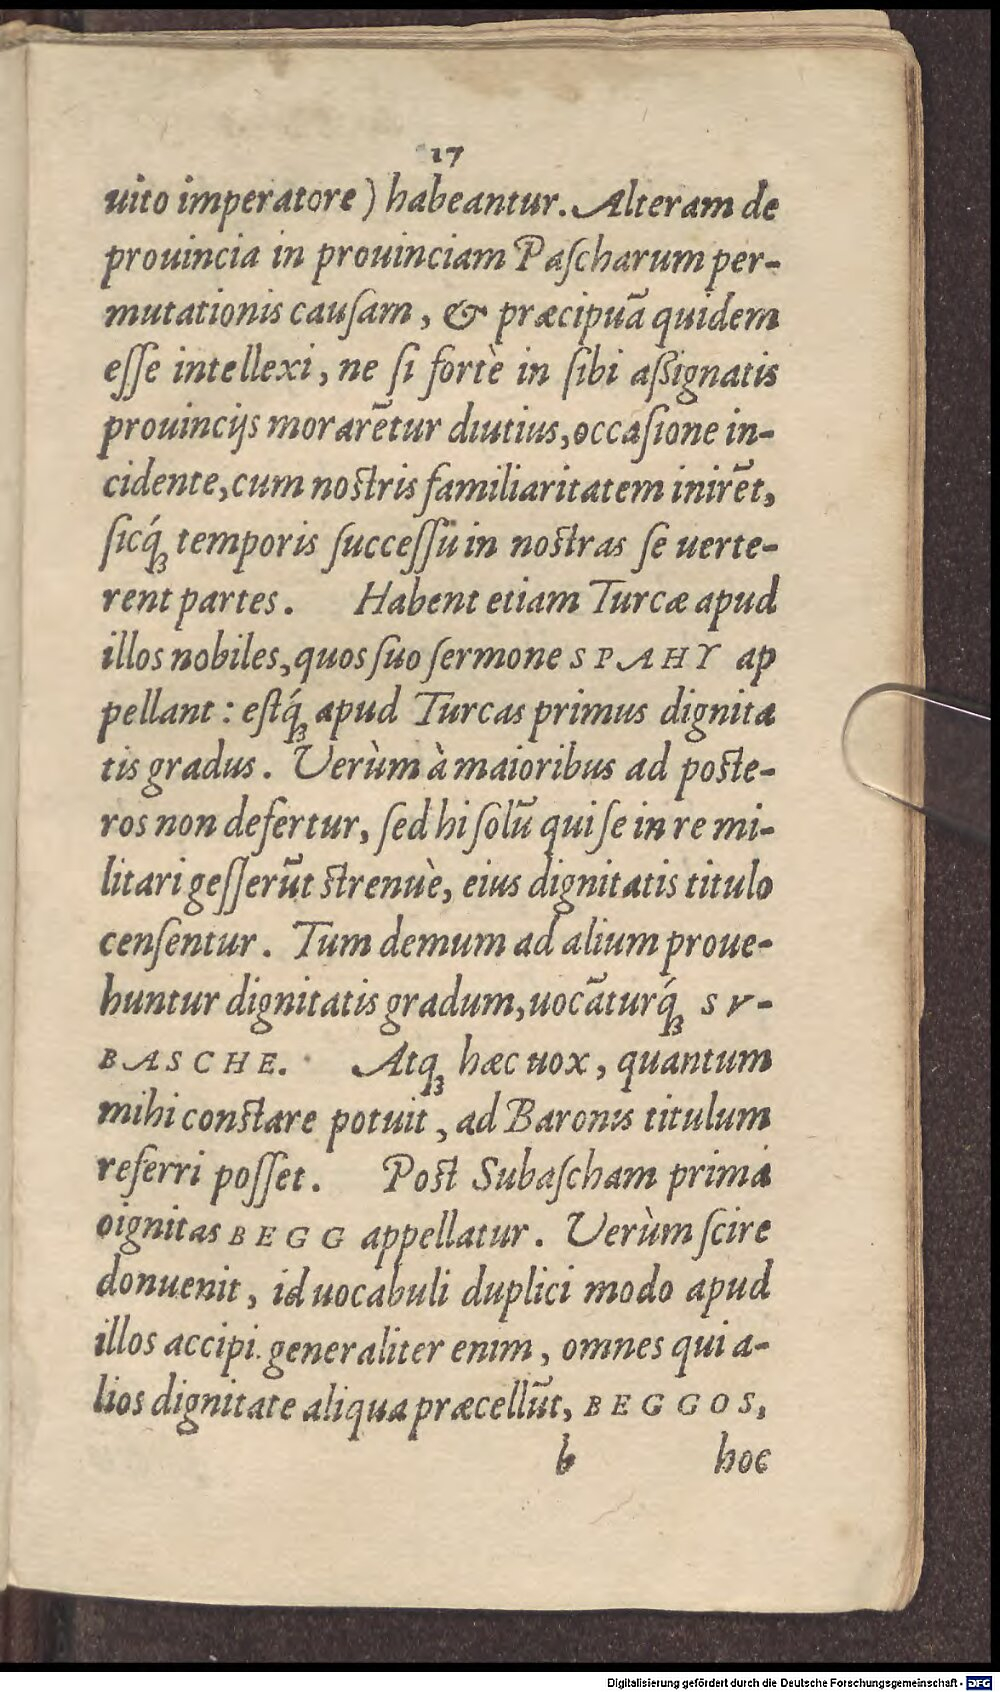 17
uito imperatore) habeantur. Alteram de
prouincia in prouinciam Paſcharum per-
mutationis cauſam, & præcipuā quidem
eſſe intellexi, ne ſi fortè in ſibi aßignatis
prouincijs morarētur diutius, occaſione in-
cidente, cum noſtris familiaritatem inirēt,
ſicq́ꝫ temporis ſucceſſu in noſtras ſe uerte-
rent partes. Habent etiam Turcæ apud
illos nobiles, quos ſuo ſermone SPAHY ap
pellant: eſtq́ꝫ apud Turcas primus dignita
tis gradus. Verùm à maioribus ad poſte-
ros non defertur, ſed hi ſolū qui ſe in re mi-
litari geſſerūt ſtrenuè, eius dignitatis titulo
cenſentur. Tum demum ad alium proue-
huntur dignitatis gradum, uocāturq́ꝫ SV-
BASCHE. Atqꝫ hæc uox, quantum
mihi conſtare potuit, ad Baronis titulum
referri poſſet. Poſt Subaſcham prima
oignitas BEGG appellatur. Verùm ſcire
donuenit, id uocabuli duplici modo apud
illos accipi. generaliter enim, omnes qui a-
lios dignitate aliqua præcellūt, BEGGOS,
b hoc
Digitalisierung gefördert durch die Deutsche Forschungsgemeinschaft - DFG